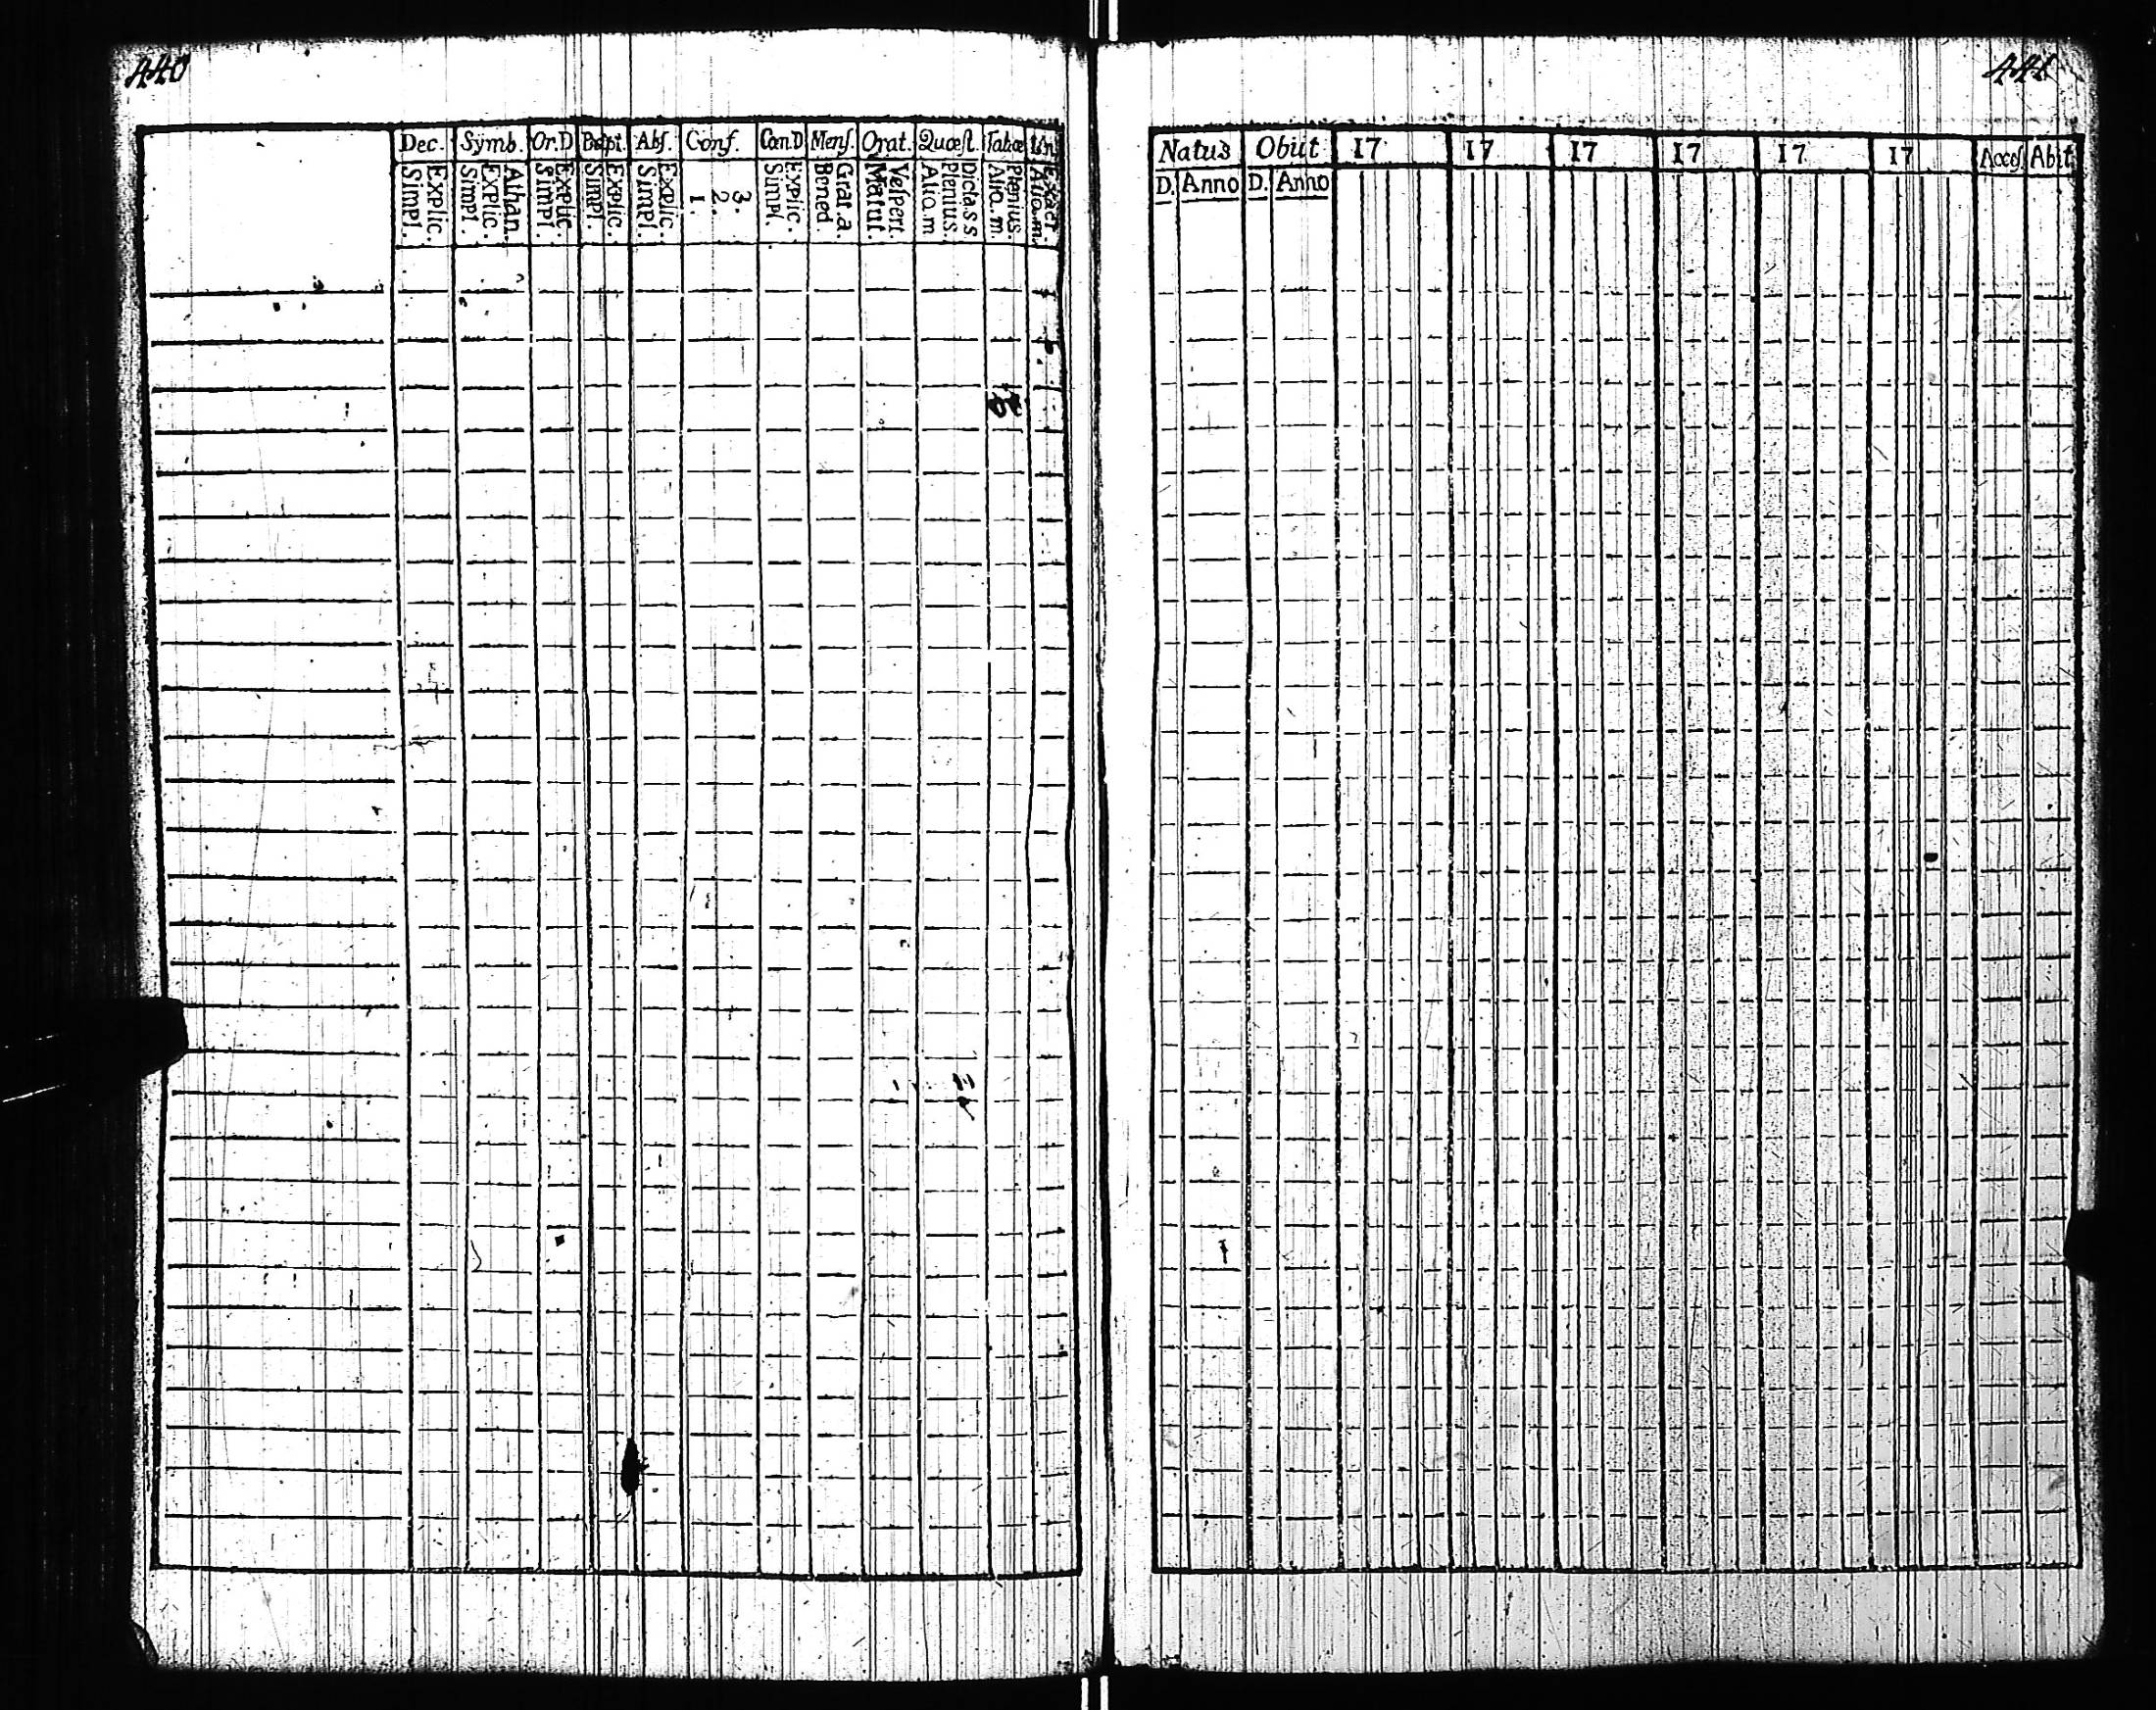 440
Dec. Symb. Or.D Bapt. Abſ. Conf. Cœn.D Menſ. Orat. Quæſt. Tabæ
Simpl. Explic. Simpl. Explic. Athan. Simpl. Explic. Simpl. Explic. Simpl. Explic. 1. 2. 3. Simpl. Explic. Bened. Grat.a. Matut. Veſpert. Alio.m Plenius. Dicta.s s Alio.m. Plenius. Alio.m. Exact.
441
Natus Obiit 17 17 17 17 17 17 Acceſ. Abit.
D. Anno D. Anno